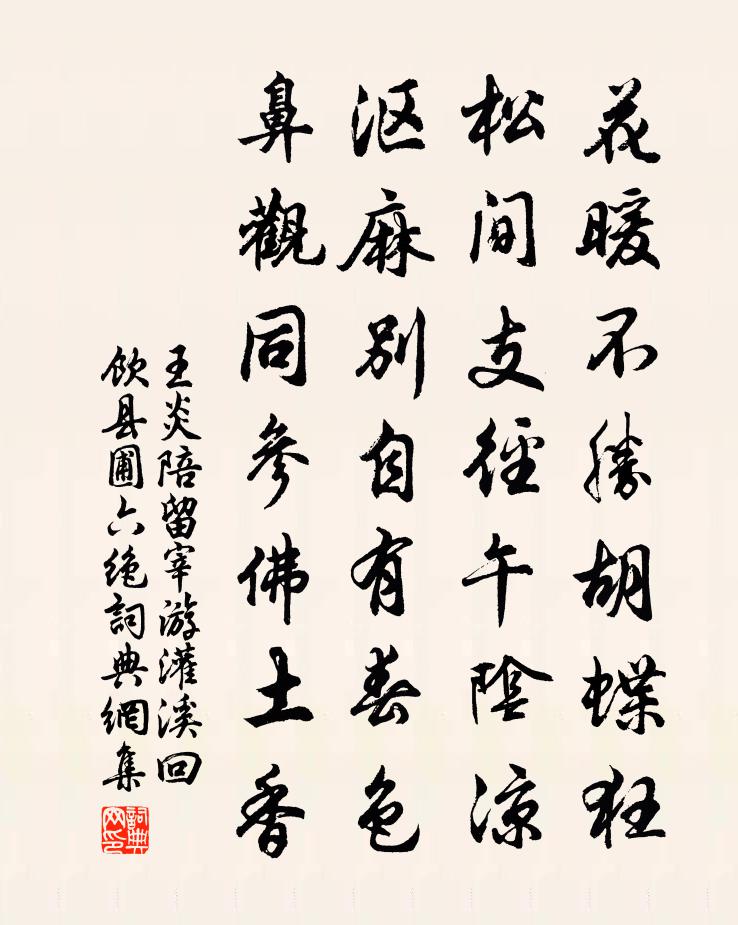 花暖不勝胡蝶狂
松间支徑午陰凉
沤麻別自有春色
鼻觀同參佛土香
王炎陪留宰游灌溪回
飲县圃六绝詞典網集
詞典
网印